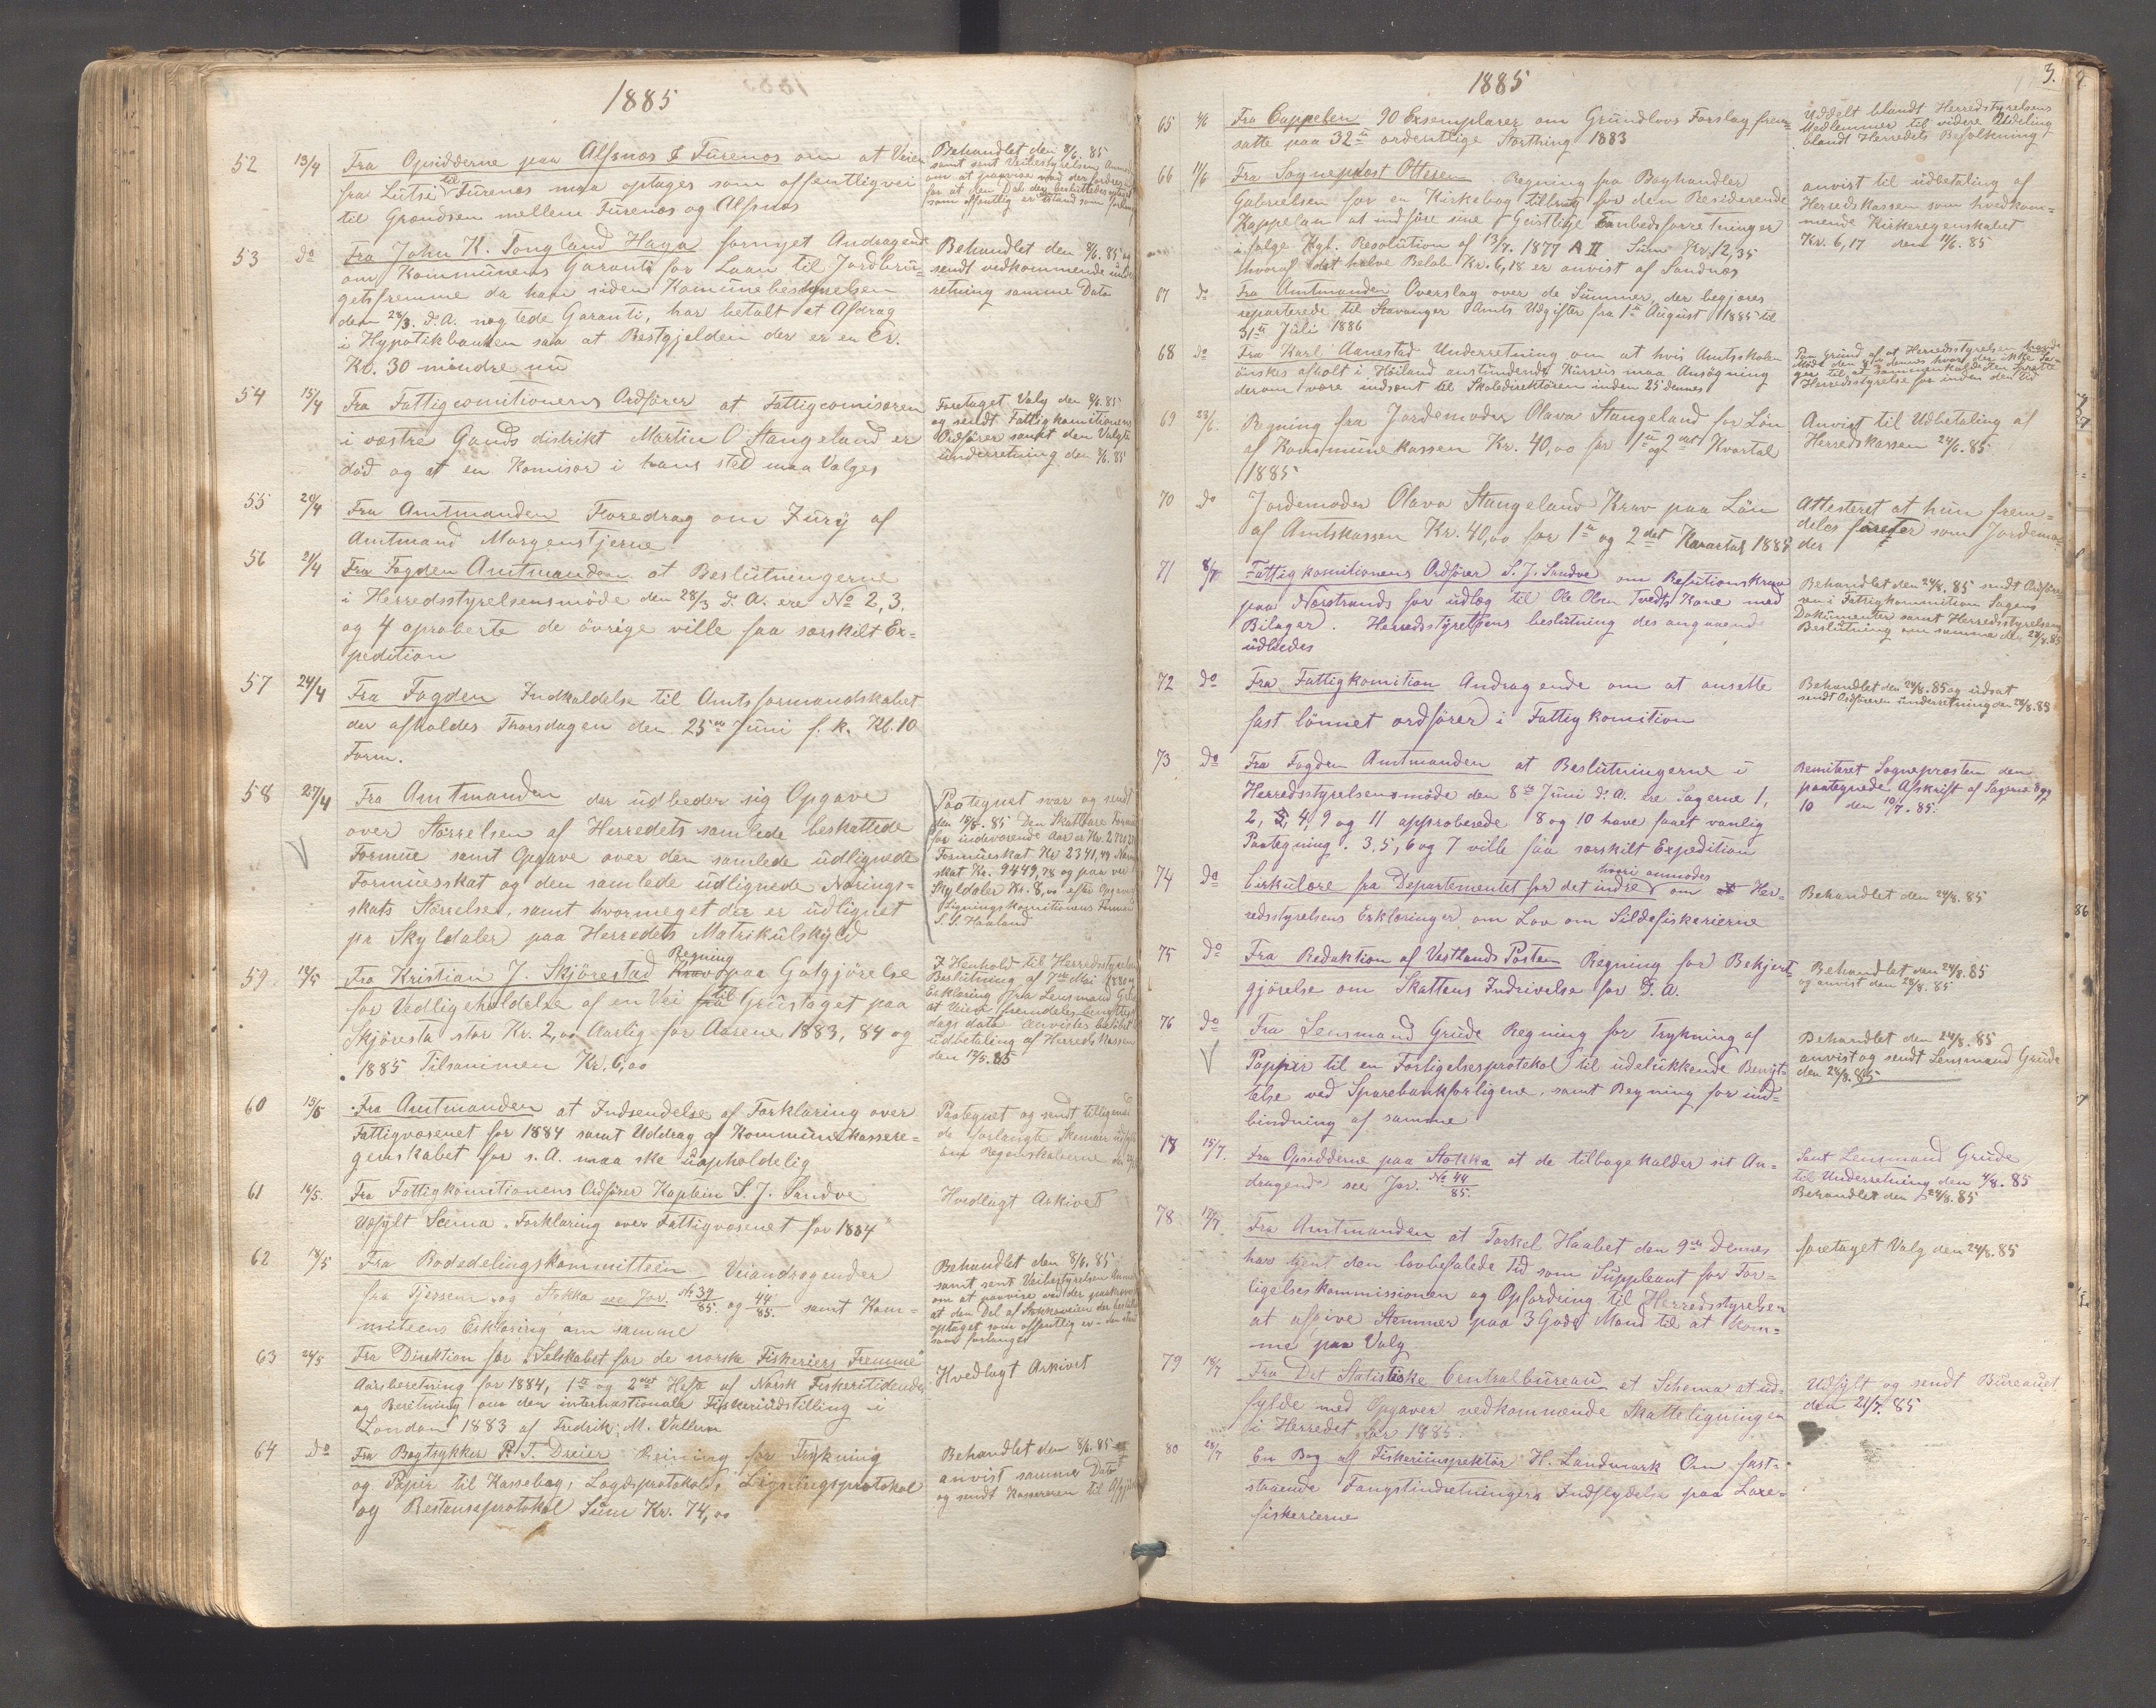 1885
52 13/4 Fra Opsidderne paa Alfsnæs & Furenes om at Veien
fra Lutsi til Furenes maa optages som offentligvei
til Grændsen mellem Furenes og Alfsnes
Behandlet den 8/6. 85
samt sent Veibestyrelsen
53 do Fra John H. Tongland Haga fornyet Andragende
om Kommunens Garanti for Laan til Jordbru-
gets fremme da han siden Komunebestyrelsen
den 28/3. d. A. nægtede Garanti, har betalt et Afdrag
i Hypotikbanken saa at Restgjelden der er en Cr.
Kr. 30 mindre nu
Behandlet den 8/6. 85 og
sendt vedkommende under-
retning samme Dato
54 15/4 Fra Fattigcomitionens Ordfører at Fattigcomisæren
i vestre Gands distrikt Martin O Stangeland er
død og at en Komisær i hans sted maa Vælges
Foretaget Valg den 8/6. 85
og sendt Fattigkomitionens
Ordfører samt den Valgte
underretning den 9/6. 85
55 20/4 Fra Amtmanden Foredrag om Jury af
Amtmand Morgenstjerne
56 21/4 Fra Fogden Amtmanden at Beslutningerne
i Herredsstyrelsensmøde den 28/3 d. A. ere No 2, 3,
og 4 aproberte de øvrige ville faa særskilt Ex-
pedition
57 24/4 Fra Fogden Indkaldelse til Amtsformandskabet
der afholdes Thorsdagen den 25de Juni f. k. Kl. 10
Form.
58 27/4 Fra Amtmanden der udbeder sig Opgave
over Størrelsen af Herredets samlede beskattede
Formue samt Opgave over den samlede udlignede
Formuesskat og den samlede udlignede Nærings-
skats Størrelse, samt hvormeget der er udlignet
pr. Skyldaler paa Herredets Matrikulskyld
Paategnet svar og sendt
Formueskat Kr 2341,49
skat Kr. 9449,78 og paa
Skyldaler Kr. 8,00 efter Opgave
Ligningskomitionens Formand
S. S. Haaland
59 12/5 Fra Kristian J. Skjørestad Krav Regning paa Godgjørelse
for Vedligeholdelse af en Vei fra til Grustaget paa
Skjøresta stor Kr. 2,00 Aarlig for Aarene 1883, 84 og
1885 Tilsammen Kr. 6,00
I Henhold til Herredsstyrelsens
Beslutning af 7de Mai 1880 og
Erklæring fra Lensmand Grude
at Veien fremdeles benyttes
dags dato anvistes beløbet til
udbetaling af Herredskassen
den 12/5. 85
60 13/5 Fra Amtmanden at Indsendelse af Forklaring over
Fattigvæsenet for 1884 samt Uddrag af Kommunekassere-
genskabet for s. A. maa ske uopholdelig
Paategnet og sendt tilligemed
de forlangte Skemaer
om regenskaberne
61 16/5. Fra Fattigkomitionens Ordfører Kaptein S. J. Sandve
Udfylt Scema. Forklaring over Fattigvæsenet for 1884
Hvedlagt Arkivet
62 18/5 Fra Rodedelingskommitteen Veiandragender
fra Tjersem og Stokka see Jor. No 39/85. og 44/85. samt Kom-
miteens Erklæring om samme
Behandlet den 8/6. 85
samt sent Veibestyrelsen
at den Del af Stokkaveien der
optaget som offentlig er
som forlanget
63 24/5 Fra Direktion for "Selskabet for de norske Fiskeriers Fremme"
Aarsberetning for 1884, 1te og 2det Hefte af Norsk Fiskeritidende
og Beretning om den internationale Fiskeriudstilling i
London 1883 af Fredrik, M. Wallem
Hvedlagt Arkivet
64 do Fra Bogtrykker P. T. Dreier Regning for Trykning
og Papir til Kassebog, Lagdsprotokol, Ligningsprotokol
og Restanseprotokol Sum Kr. 74,00
Behandlet den 8/6. 85
anvist samme Dato
og sendt Kassereren til
1885 3.
65 Fra Cappelen 90 Exsemplarer om Grundlovs Forslag frem-
satte paa 32te ordentlige Storthing 1883
Uddelt blandt Herredstyrelsens
Medlemmer til videre Uddeling
blandt Herredets Befolkning
66 11/6 Fra Sogneprest Ottesen Regning fra Boghandler
Gabrielsen for en Kirkebog tilbrug for den Residerende
Kappelan at indføre sine Geistlige Embedsforretninger
i følge Kgl. Resolution af 13/7. 1877 A II Sum Kr. 12,35
hvoraf det halve Beløb Kr. 6,18 er anvist af Sandnæs
anvist til udbetaling af
Herredskassen som hvedkom-
mende Kirkeregenskabet
Kr. 6,17 den 11/6. 85
67 do Fra Amtmanden Overslag over de Summer, der begjæres
reparterede til Stavanger Amts Udgifter fra 1te August 1885 til
31te Juli 1886
68 do Fra Karl Aanestad Underretning om at hvis Amtsskolen
ønskes afholt i Høiland anstundende Kurseis maa Ansøgning
derom være indsent til Skoledirektøren inden 25 dennes
Paa grund af at Herredsstyrelsen havde
Møde den 8de dennes hvor der ikke
Herredsstyrelse for inden den tid
69 23/6. Regning fra Jordemoder Olava Stangeland for Løn
af Kommunekassen Kr. 40,00 for 1te og 2det Kvartal
1885
Anvist til Udbetaling af
Herredskassen 24/6. 85
70 do Jordemoder Olava Stangeland Krav paa Løn
af Amtskassen Kr. 40,00 for 1te og 2det Kvartal 1885
Attesteret at hun frem-
deles fungerer som Jordemo-
der
71 8/7 Fattigkomitionens Ordfører S. J. Sandve om Refutionskrav
paa Nærstrands for udlæg til Ole Olsen Tvedts Kone med
Bilager. Herredsstyrelsens beslutning des angaaende
udbedes
Behandlet den 24/8. 85 sendt Ordføre-
ren i Fattigkommition Sagens
Dokumenter samt Herredsstyrelsens
Beslutning om samme den 28/8. 85
72 do Fra Fattigkomition Andragende om at ansette
fast lønnet ordfører i Fattigkomition
Behandlet den 24/8. 85 og udsat
sendt Ordføreren underretning den 28/8. 85
73 do Fra Fogden Amtmanden at Beslutningerne i
Herredsstyrelsensmøde den 8de Juni d. A. ere Sagerne 1,
2, 4, 9 og 11 approberede 8 og 10 have faaet vanlig
Paategning. 3, 5, 6 og 7 ville faa særskilt Expedition
Remiteret Sognepræsten den
paategnede Afskrift af Sagerne 8 og
10 den 10/7. 85.
74 do Cirkulære fra Departementet for det indre hvori anmodes om Her-
redsstyrelsens Erklæringer om Lov om Sildefiskerierne
Behandlet den 24/8. 85
75 do Fra Redaktion af Vestlands Posten Regning for Bekjent-
gjørelse om Skattens Indrivelse for d. A.
Behandlet den 24/8. 85
og anvist den 28/8. 85
76 do Fra Lensmand Grude Regning for Trykning af
Pappir til en Forligelsesprotekol til udelukkende Benyt-
telse ved Sparebankforligene, samt Regning for ind-
bindning af samme
Behandlet den 24/8. 85
anvist og sendt Lensmand Grude
den 28/8. 85
78 15/7. Fra Opsidderne paa Stokka at de tilbagekalder sit An-
dragende see Jor. No 44/85.
Sent Lensmand Grude
til Underretning den 4/8. 85
Behandlet den 24/8. 85
78 17/7 Fra Amtmanden at Torkel Haabet den 9de dennes
har tjent den lovbefalede tid som Suppleant for For-
ligelseskommissionen og Opfordring til Herredsstyrelsen
at afgive Stemmer paa 3 Gode Mænd til at kom-
me paa Valg
foretaget Valg den 24/8. 85
79 18/7 Fra Det Statistiske Centralbureau et Schema at ud-
fylde med Opgaver vedkommende Skatteligningen
i Herredet for 1885.
Udfylt og sendt Bureauet
den 21/7. 85
80 28/7 En Bog af Fiskeriinspektør H. Landmark Om fast-
staaende Fangstindretningers Indflydelse paa Laxe-
fiskerierne